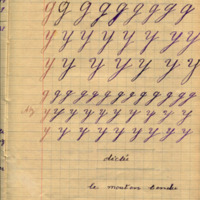 g g g g g g g g g
y y y y y y y y y
y y y y y y
g g g g g g g g g g g g
y y y y y y y y y
y y y y y y y y
dictée
le mouton